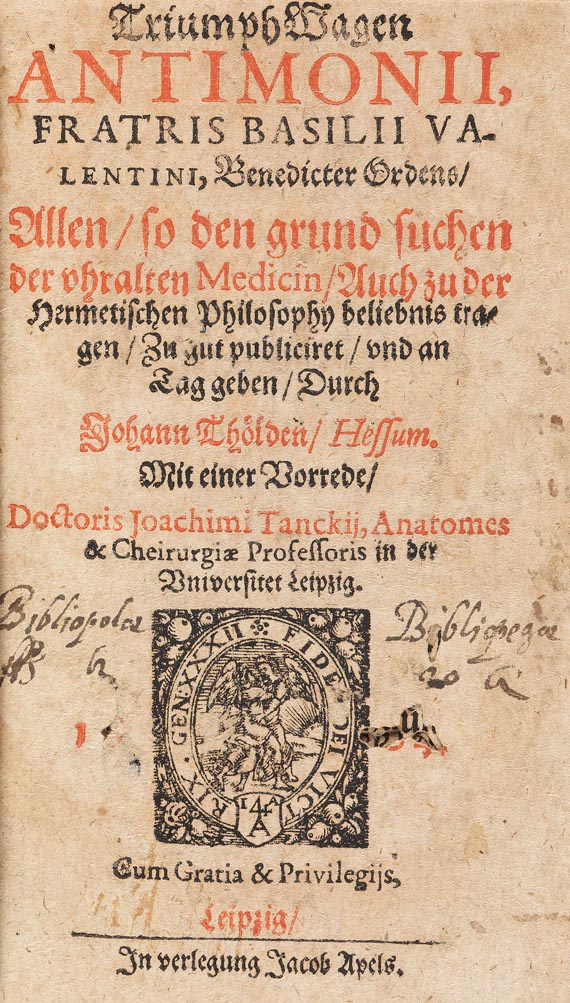 Triumph Wagen
ANTIMONII,
FRATRIS BASILII VA-
LENTINI, Benedicter Ordens/
Allen / so den grund suchen
der vhralten Medicin / Auch zu der
Hermetischen Philosophy beliebnis tra-
gen / Zu gut publiciret / vnd an
Tag geben / Durch
Johann Thölden / Hessum.
Mit einer Vorrede /
Doctoris Joachimi Tanckij, Anatomes
& Cheirurgiæ Professoris in der
Vniversitet Leipzig.
Bibliopolæ
Bibliopegæ
20
GEN. XXXII FIDES DEI VICTRIX
IA
A
Cum Gratia & Privilegijs,
Leipzig /
In verlegung Jacob Apels.